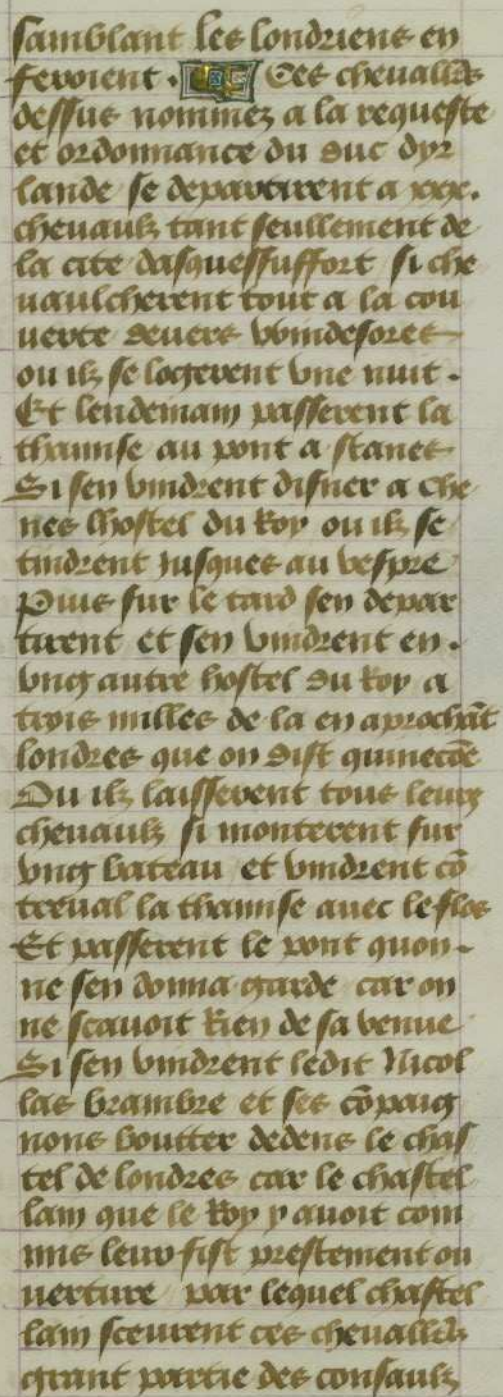 samblant les londriens en
feroient. Ces cheualiers
dessus nommez a la requeste
et ordonnance du duc dyr
lande se departirent a xxx.
cheuaulz tant seullement de
la cite dasquessuffort si che
uaulcherent tout a la cou
uerte deuers windesores
ou ilz se logerent vne nuit.
Et lendemain passerent la
thamise au pont a stanes
Si sen vindrent disner a che
nes lhostel du Roy ou ilz se
tindrent jusques au vespre
Puis sur le tard sen depar
tirent et sen vindrent en.
vng autre hostel du roy a
trois milles de la en aprochāt
londres que on dist quinecōe
Ou ilz laisserent tous leurs
cheuaulz si monterent sur
vng bateau et vindrent cō
treual la thamise auec le flos
Et passerent le pont quon.
ne sen donna garde car on
ne scauoit Rien de sa venue
Si sen vindrent ledit Nicol
las brambre et ses cōpaig
nons boutter dedens le chas
tel de londres car le chastel
lain que le Roy y auoit com
mis leur fist prestement ou
uerture par lequel chastel
lain sceurent ces cheualiers
grant partie des consaulz